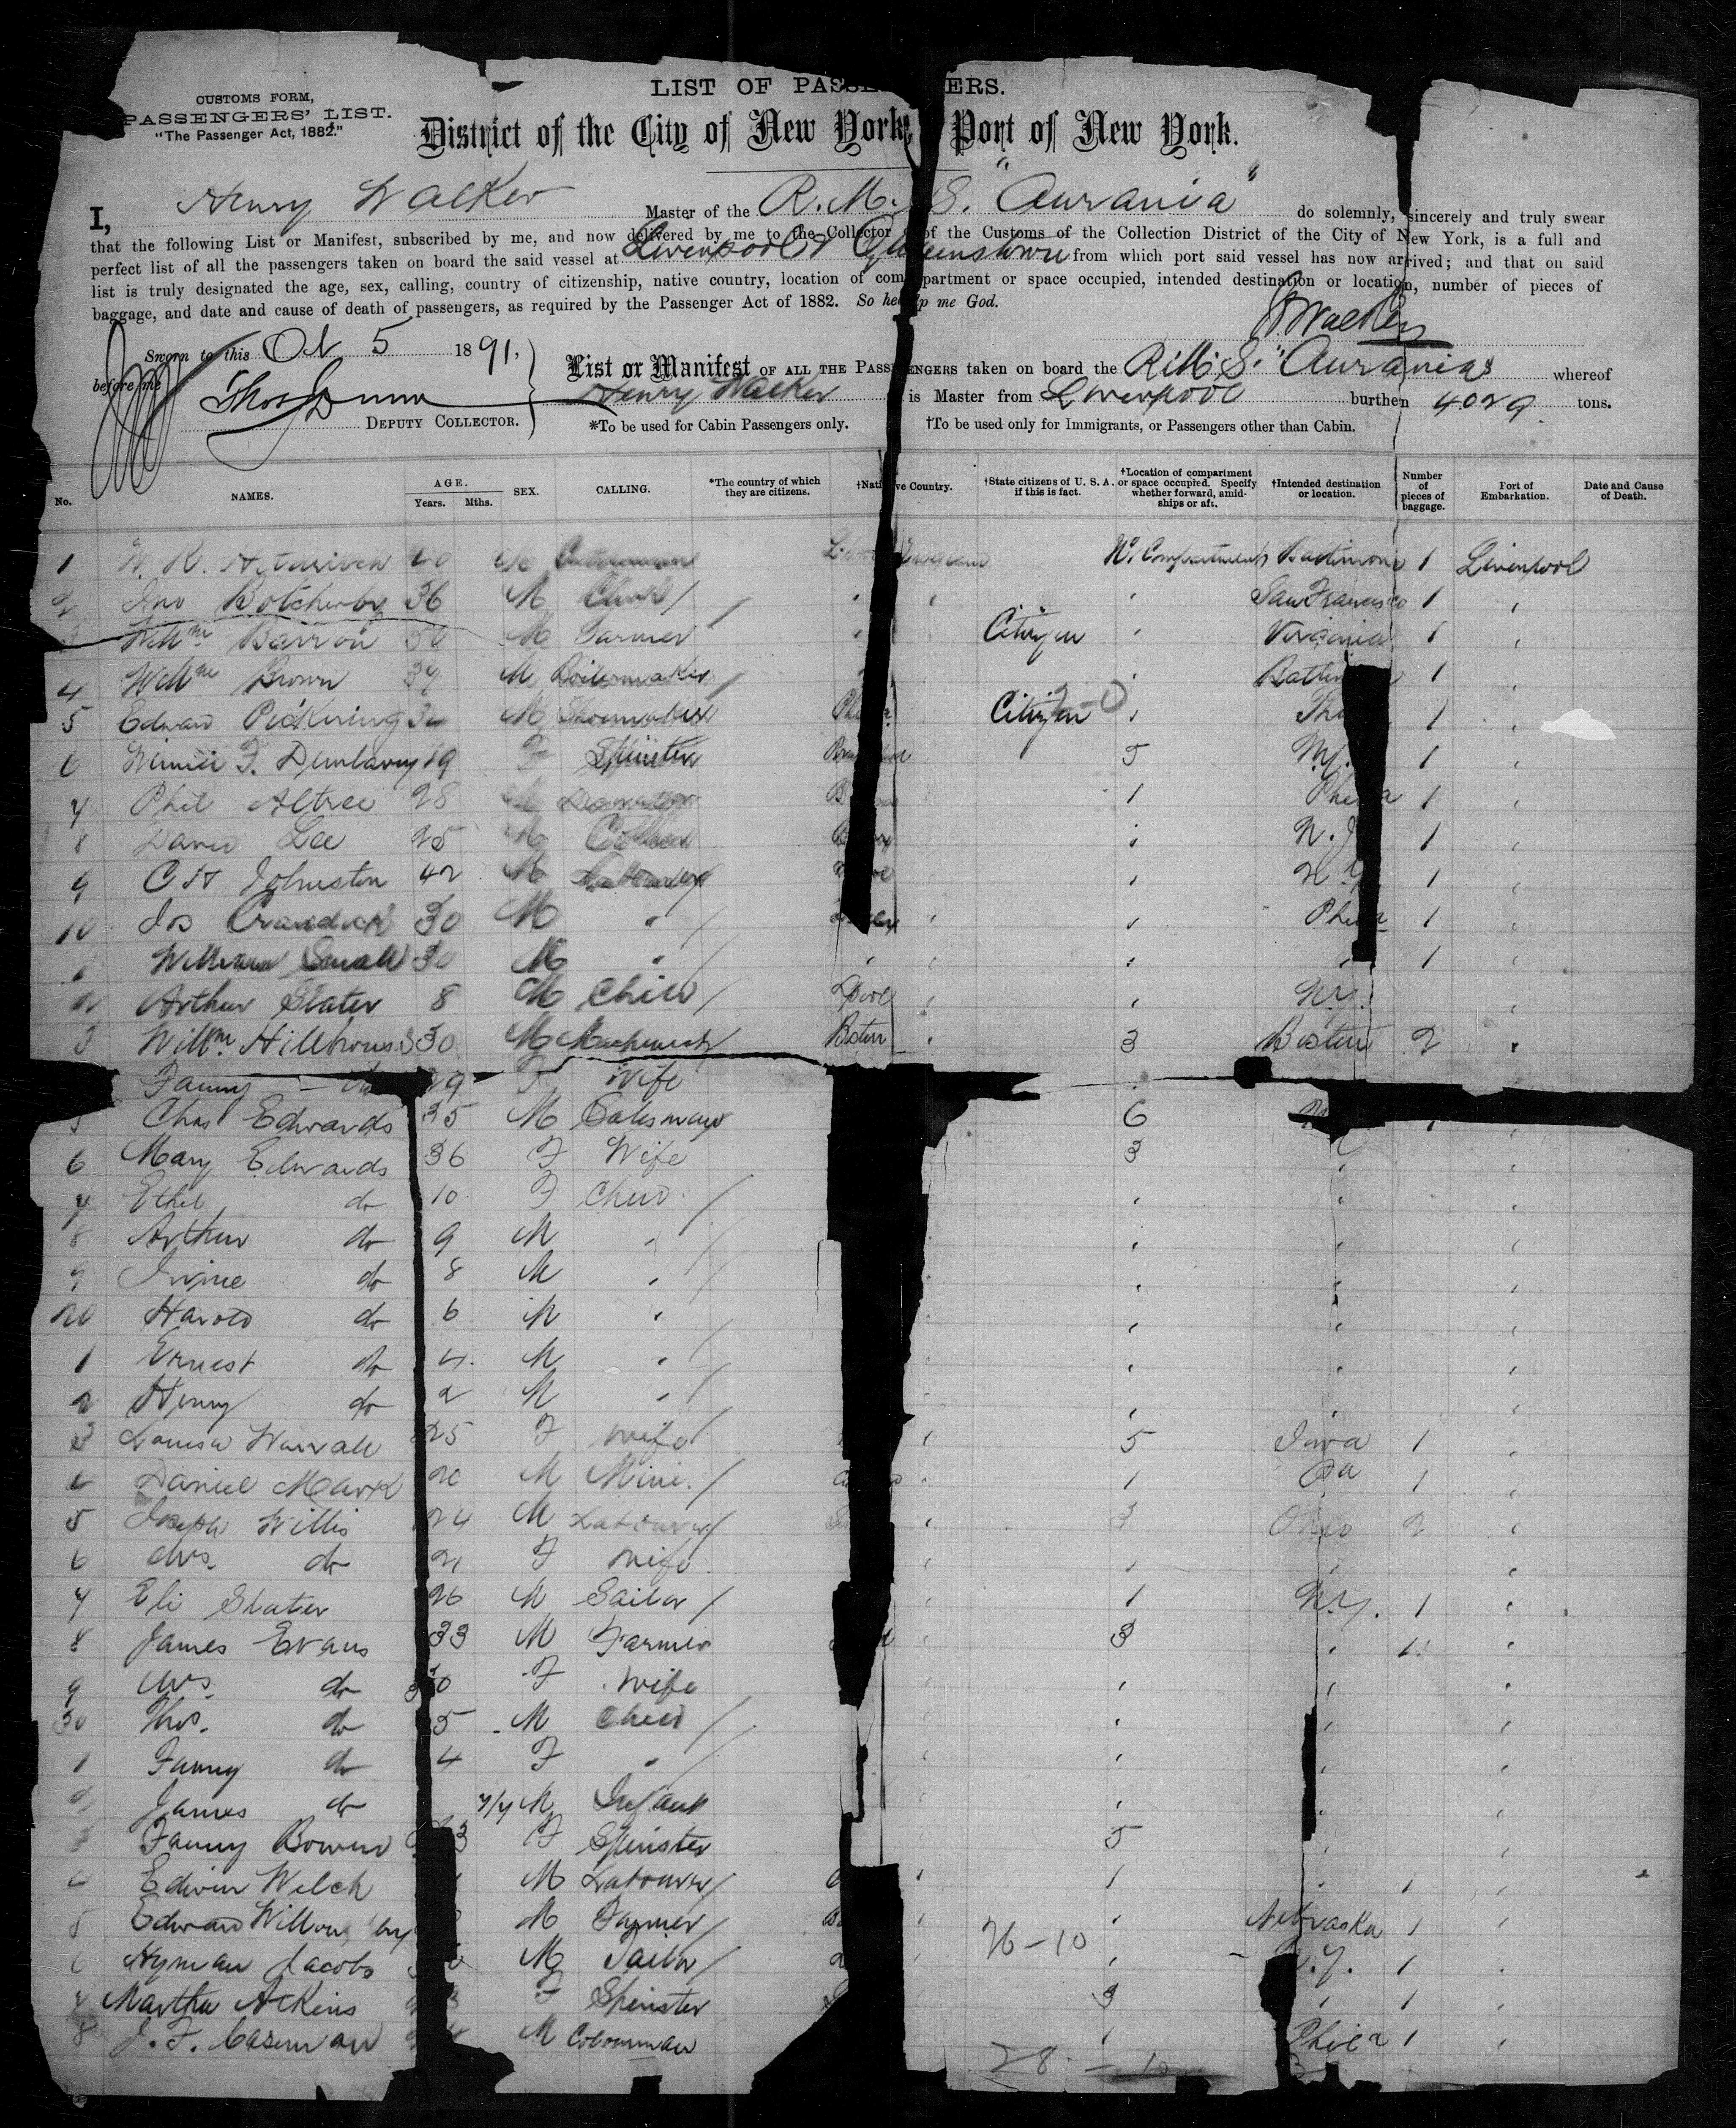 CUSTOMS FORM,
PASSENGERS' LIST.
"The Passenger Act, 1882."
LIST OF PASSE ERS.
District of the City of New York, Port of New York.
I, Henry Walker Master of the R.M.S. "Aurania" do solemnly, sincerely and truly swear
that the following List or Manifest, subscribed by me, and now delivered by me to the Collector of the Customs of the Collection District of the City of New York, is a full and
perfect list of all the passengers taken on board the said vessel at Liverpool & Queenstown from which port said vessel has now arrived; and that on said
list is truly designated the age, sex, calling, country of citizenship, native country, location of compartment or space occupied, intended destination or location, number of pieces of
baggage, and date and cause of death of passengers, as required by the Passenger Act of 1882. So help me God.
H. Walker
Sworn to this Oct 5 1891,
before me
Thos Dunn
DEPUTY COLLECTOR.
List or Manifest OF ALL THE PASSENGERS taken on board the R.M.S. "Aurania" whereof
Henry Walker is Master from Liverpool burthen 4029 tons.
*To be used for Cabin Passengers only. †To be used only for Immigrants, or Passengers other than Cabin.
No. NAMES. AGE. Years. Mths. SEX. CALLING. *The country of which they are citizens. †Native Country. †State citizens of U. S. A. if this is fact. †Location of compartment or space occupied. Specify whether forward, amidships or aft. †Intended destination or location. Number of pieces of baggage. Port of Embarkation. Date and Cause of Death.
1 W. K. 20 M England No 1 Compartment Baltimore 1 Liverpool
2 Jno Botcherby 36 M Clerk / " " San Francisco 1 "
Willm Barron M Farmer " Citizen " Virginia 1 "
4 Willm Brown 34 M Boilermaker / " " 1 "
5 Edward Pickering M Shoemaker Citizen " 1 "
6 F. 19 F Spinster 5 N.Y. 1 "
7 Phil Altree 28 M 1 Phila 1 "
8 David Lee 25 M " N.J. 1 "
9 Johnston 42 M Labourer " N.Y. 1 "
10 Jos 30 M " / " " Phila 1 "
1 William Small 30 M " / " " " " 1 "
2 Arthur Slater 8 M Child / Lpool " " N.Y. "
3 Willm Hillhouse 30 M Machinist / Boston " 3 Boston 2 "
Fanny 29 F Wife "
5 Chas Edwards 35 M Salesman 6 "
6 Mary Edwards 36 F Wife 3 " "
7 Ethel do 10 F Child / " " "
8 Arthur do 9 M " / " " "
9 Irvine do 8 M " / " " "
20 Harold do 6 M " " " "
1 Ernest do 4 M " / " " "
2 Henry do 2 M " / " " "
3 Louisa Warrall 25 F Wife / " 5 Iowa 1 "
4 Daniel Mark 20 M Mini. / " 1 Pa 1 "
5 Joseph Willis 24 M Labourer / " 3 Ohio 2 "
6 Mrs. do 21 F Wife " " " "
7 Eli Slater 26 M Sailor / " 1 N.Y. 1 "
8 James Evans 33 M Farmer " 3 " "
9 Mrs. do 30 F Wife " " " "
30 Thos. do 5 M Child / " " " "
1 Fanny do 4 F " / " " " "
2 James do M Infant " " " "
3 Fanny Bowen F Spinster 5 " "
4 Edwin Welch M Labourer / " 1 " 1 "
5 Edward Willoughby M Farmer / " " Nebraska 1 "
26-10
6 Hyman Jacobs M Tailor / " " N.Y. 1 "
7 Martha Atkins F Spinster 3 " 1 "
8 J. F. Caseman M " Phila 1 "
28-10